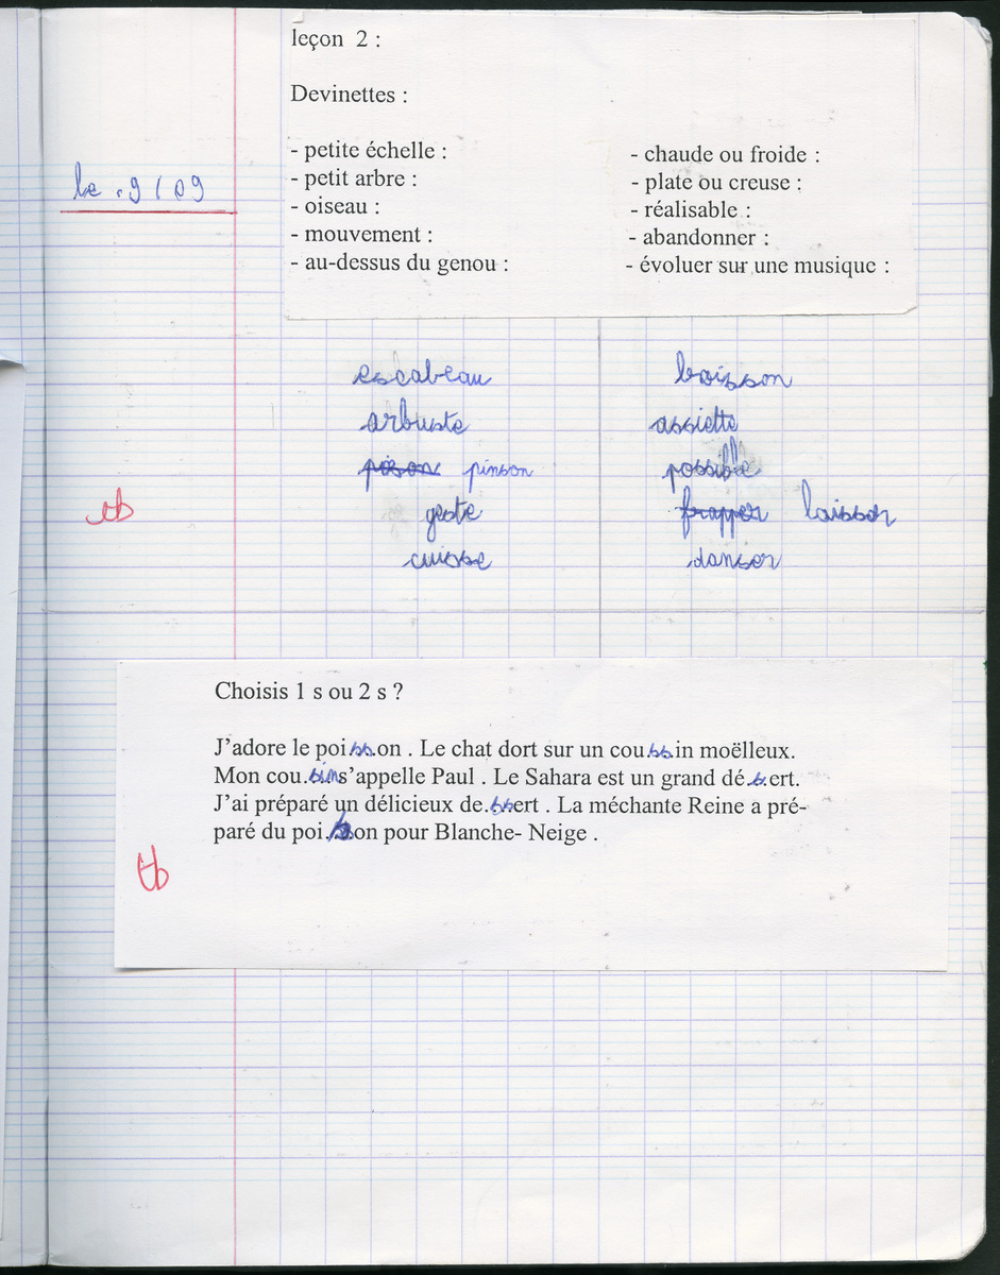 leçon 2 :
Devinettes :
- petite échelle :
- petit arbre :
- oiseau :
- mouvement :
- au-dessus du genou :
- chaude ou froide :
- plate ou creuse :
- réalisable :
- abandonner :
- évoluer sur une musique :
le 19/09
escabeau
arbuste
pinson
geste
cuisse
boisson
assiette
possible
frapper laisser
danser
tb
Choisis 1 s ou 2 s ?
J'adore le poisson . Le chat dort sur un cou.ssin moëlleux.
Mon cou.sin s'appelle Paul . Le Sahara est un grand dé.s.ert.
J'ai préparé un délicieux de.ssert . La méchante Reine a pré-
paré du poi.son pour Blanche- Neige .
tb